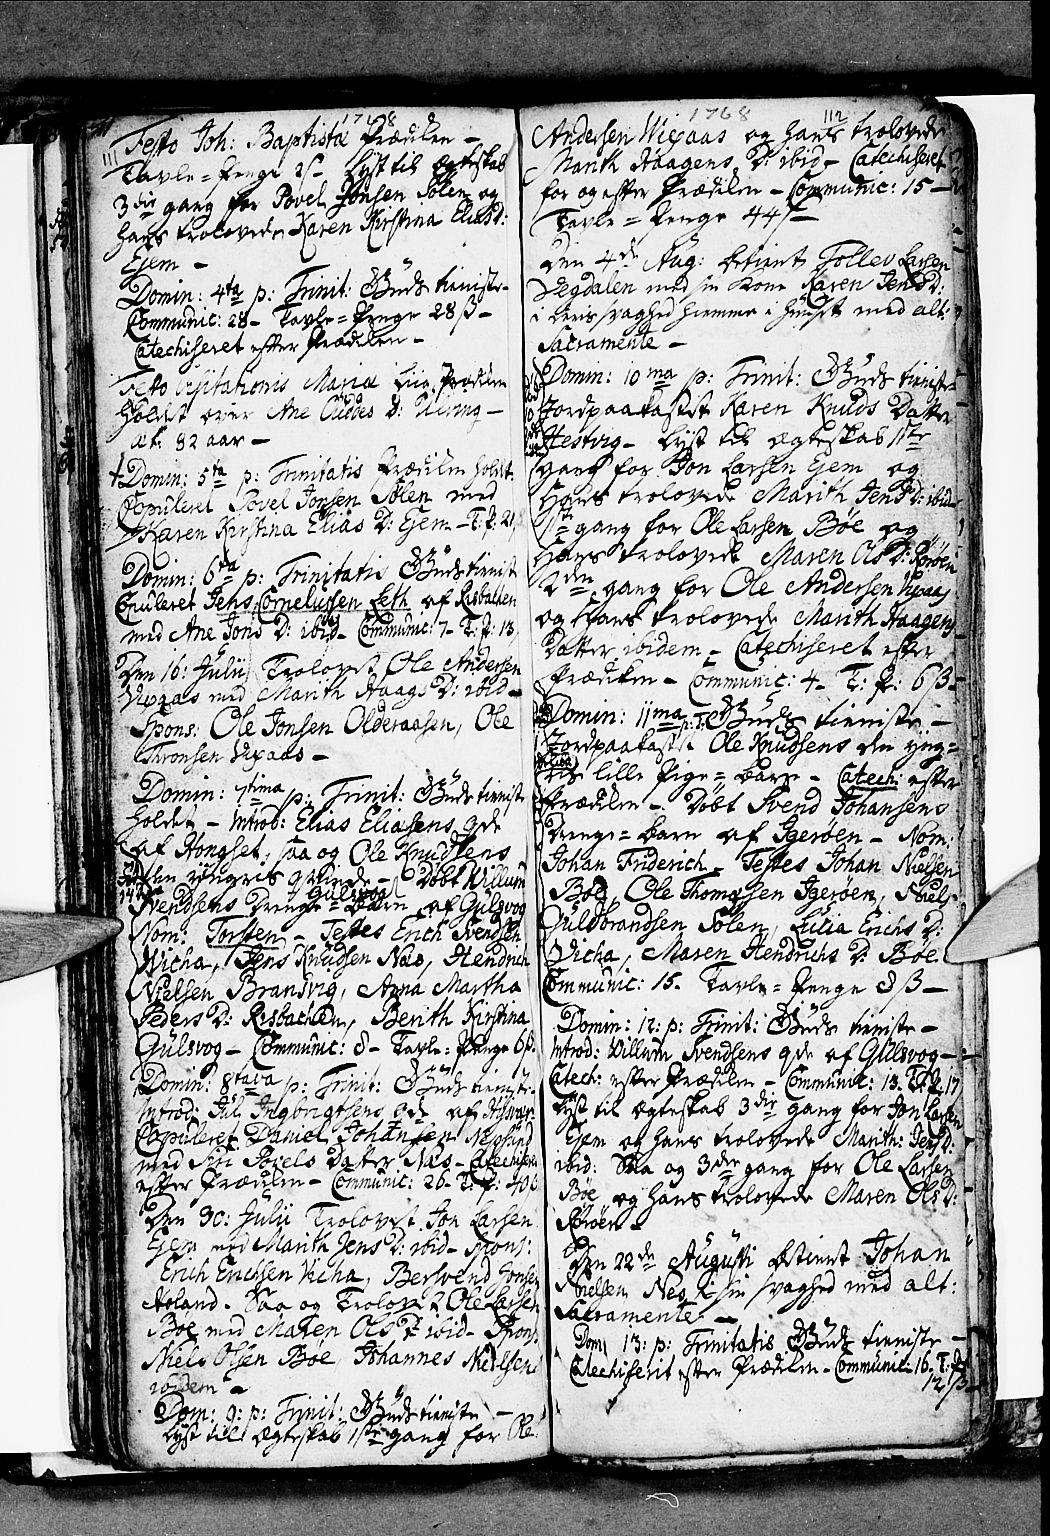 1768
111
Festo Joh: Baptistæ Prædiken –
Tavle=Penge 2ß – Lyst til Ægteskab
3die gang for Povel Jonsen Solem og
hans trolovede Karen Kirstina Elias D:
Ejem –
Domin: 4ta p: Trinit: Guds tieniste –
Communic: 28 – Tavle=Penge 28ß –
Catechiseret efter Prædiken –
Festo Visitationis Mariæ Liig Prædiken
holdet over Ane Æt: 82 aar –
Domin: 5ta p: Trinitatis Prædiken holdt.
Copuleret Povel Jonsen Solem med
Karen Kirstina Elias D: Ejem – T: P: 21
Domin: 6ta p: Trinitatis Guds tienist
Copuleret Jens Cornelius­sen Leth af Risbakken
med Ane Jons D: ibid – Communic: 7 – T: P: 13
Den 16: Julii Trolovet Ole Andersen
Vixaas med Marith Haags D: ibid –
Spons: Ole Jonsen Olderaasen, Ole
Thronsen Vixaas –
Domin: 7tima p: Trinit: Guds tieniste
holden – Introd: Elias Eliasens qde
af Hongset, saa og Ole Knudsens
den yngres qvinde – Døbt Willum
Svendsens Drenge=Barn af Gulsvog
Nom: Torsten – Testes Erich Svendsen
Wicha, Jens Knudsen Næs, Hendrich
Nielsen Brandvig, Anna Martha
Peders D: Risbacken, Berith Kirstina
Gulsvog – Communic: 8 – Tavle=Penge 6ß.
Domin: 8tava p: Trinit: Guds tieniste.
Introd: Ingbrigtsens qde af
Copuleret Daniel Johansen
med Siri Povels Datter Næs – Catechiseret
efter Prædiken – Communic: 26 – T: P: 40ß
Den 30: Julii Trolovet Jon Larsen
Ejem med Marith Jens D: ibid – Spons:
Erich Erichsen Vicha, Bersvend Jonsen
Aoland. Saa og Trolovet Ole Larsen
Bøe med Maren Ols D: ibid – Spons:
Niels Olsen Bøe, Johannes Nielsen
ibidem –
Dom: 9: p: Trinit: Guds tieniste –
Lyst til Ægteskab 1ste gang for Ole
1768
112
Andersen Wixaas og hans trolovede
Marith Haagens D: ibid – Catechiseret
før og efter Prædiken – Communic: 15 –
Tavle=Penge 44ß –
Den 4de Aug: betient Tollev Larsen
Segdalen med sin Kone Karen Jens D:
i deris svaghed hiemme i huuset med alt:
Sacramente –
Domin: 10ma p: Trinit: Guds tieniste
Jordpaakastet Karen Knuds Datter
Hestvig – Lyst til Ægteskab 1ste
gang for Jon Larsen Ejem og
Hans trolovede Marith Jens D: ibidem
1ste gang for Ole Larsen Bøe og
Hans trolovede Maren Ols D:
2den gang for Ole Andersen Vixaas
og Hans trolovede Marith Haagens
Datter ibidem – Catechiseret efter
Prædiken – Communic: 4 – T: P: 6ß –
Domin: 11ma p: T: Guds tieniste –
Jordpaakastet Ole Knudsens den yng=
lille Pige=Barn – Catech: efter
Prædiken – Døbt Svend Johansens
Drenge=Barn af Igerøen – Nom:
Johan Friderich – Testes Johan Nielsen
Bøe, Ole Thomæsen Igerøen, Niels
Guldbrandsen Solem, Lilia Erichs D:
Vicha, Maren Hendrichs D: Bøe
Communic: 15. Tavle=Penge 8ß –
Domin: 12: p: Trinit: Guds tieniste –
Introd: Willum Svendsens qde af Gulsvog –
Catech: efter Prædiken – Communic: 13. T: P: 17
Lyst til Ægteskab 3die gang for Jon Larsen
Ejem og hans trolovede Marith: Jens D:
ibid: Saa og 3die gang for Ole Larsen
Bøe og hans trolovede Maren Ols D:
Den 22de Augusti betient Johan
Nielsen Nes i sin svaghed med alt:
Sacramente –
Dom, 13: p: Trinitatis Guds tieniste –
Catechiserit efter Prædiken – Communic: 16. T: P:
12ß –